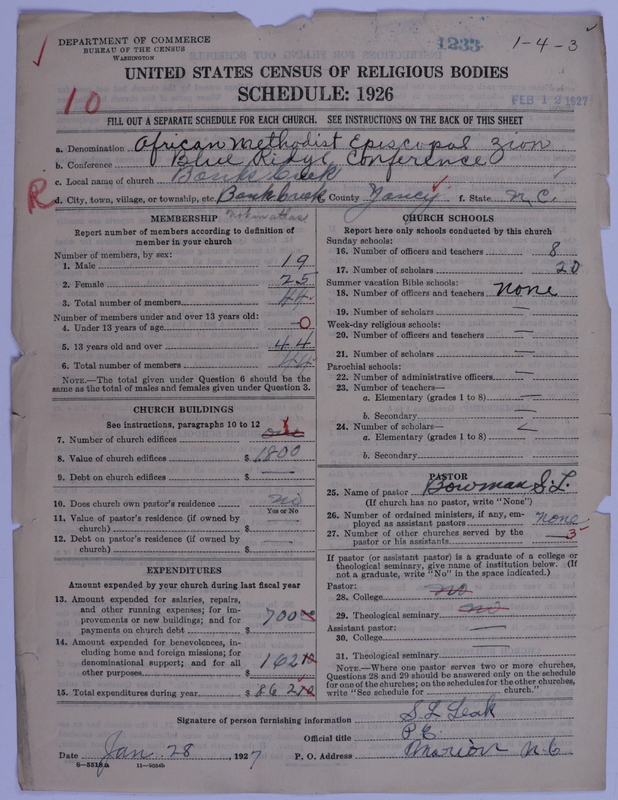 DEPARTMENT OF COMMERCE
BUREAU OF THE CENSUS
WASHINGTON
1233
1-4-3
UNITED STATES CENSUS OF RELIGIOUS BODIES
SCHEDULE: 1926
10
FEB 12 1927
FILL OUT A SEPARATE SCHEDULE FOR EACH CHURCH. SEE INSTRUCTIONS ON THE BACK OF THIS SHEET
a. Denomination African Methodist Episcopal Zion
b. Conference Blue Ridge Conference
c. Local name of church Banks Creek
R
d. City, town, village, or township, etc. Bankcreek County Yancey f. State N.C.
MEMBERSHIP
Report number of members according to definition of
member in your church
Number of members, by sex:
1. Male 19
2. Female 25
3. Total number of members 44
Number of members under and over 13 years old:
4. Under 13 years of age 0
5. 13 years old and over 44
6. Total number of members 44
NOTE.—The total given under Question 6 should be the
same as the total of males and females given under Question 3.
CHURCH BUILDINGS
See instructions, paragraphs 10 to 12
7. Number of church edifices one 1
8. Value of church edifices $ 1800
9. Debt on church edifices $ —
10. Does church own pastor's residence no
Yes or No
11. Value of pastor's residence (if owned by
church) $ —
12. Debt on pastor's residence (if owned by
church) $ —
EXPENDITURES
Amount expended by your church during last fiscal year
13. Amount expended for salaries, repairs,
and other running expenses; for im-
provements or new buildings; and for
payments on church debt $ 700
14. Amount expended for benevolences, in-
cluding home and foreign missions; for
denominational support; and for all
other purposes $ 162
15. Total expenditures during year $ 862
CHURCH SCHOOLS
Report here only schools conducted by this church
Sunday schools:
16. Number of officers and teachers 8
17. Number of scholars 20
Summer vacation Bible schools:
18. Number of officers and teachers none
19. Number of scholars —
Week-day religious schools:
20. Number of officers and teachers —
21. Number of scholars —
Parochial schools:
22. Number of administrative officers —
23. Number of teachers—
a. Elementary (grades 1 to 8) —
b. Secondary —
24. Number of scholars—
a. Elementary (grades 1 to 8) —
b. Secondary —
PASTOR
25. Name of pastor Bowman S. L.
(If church has no pastor, write "None")
26. Number of ordained ministers, if any, em-
ployed as assistant pastors none
27. Number of other churches served by the
pastor or his assistants 3
If pastor (or assistant pastor) is a graduate of a college or
theological seminary, give name of institution below. (If
not a graduate, write "No" in the space indicated.)
Pastor:
28. College no
29. Theological seminary no
Assistant pastor:
30. College —
31. Theological seminary —
NOTE.—Where one pastor serves two or more churches,
Questions 28 and 29 should be answered only on the schedule
for one of the churches; on the schedules for the other churches,
write "See schedule for church."
Signature of person furnishing information S L Leak
Official title P. E.
Date Jan. 28, 1927 P. O. Address Marion N.C
8-5518a 11-9054b